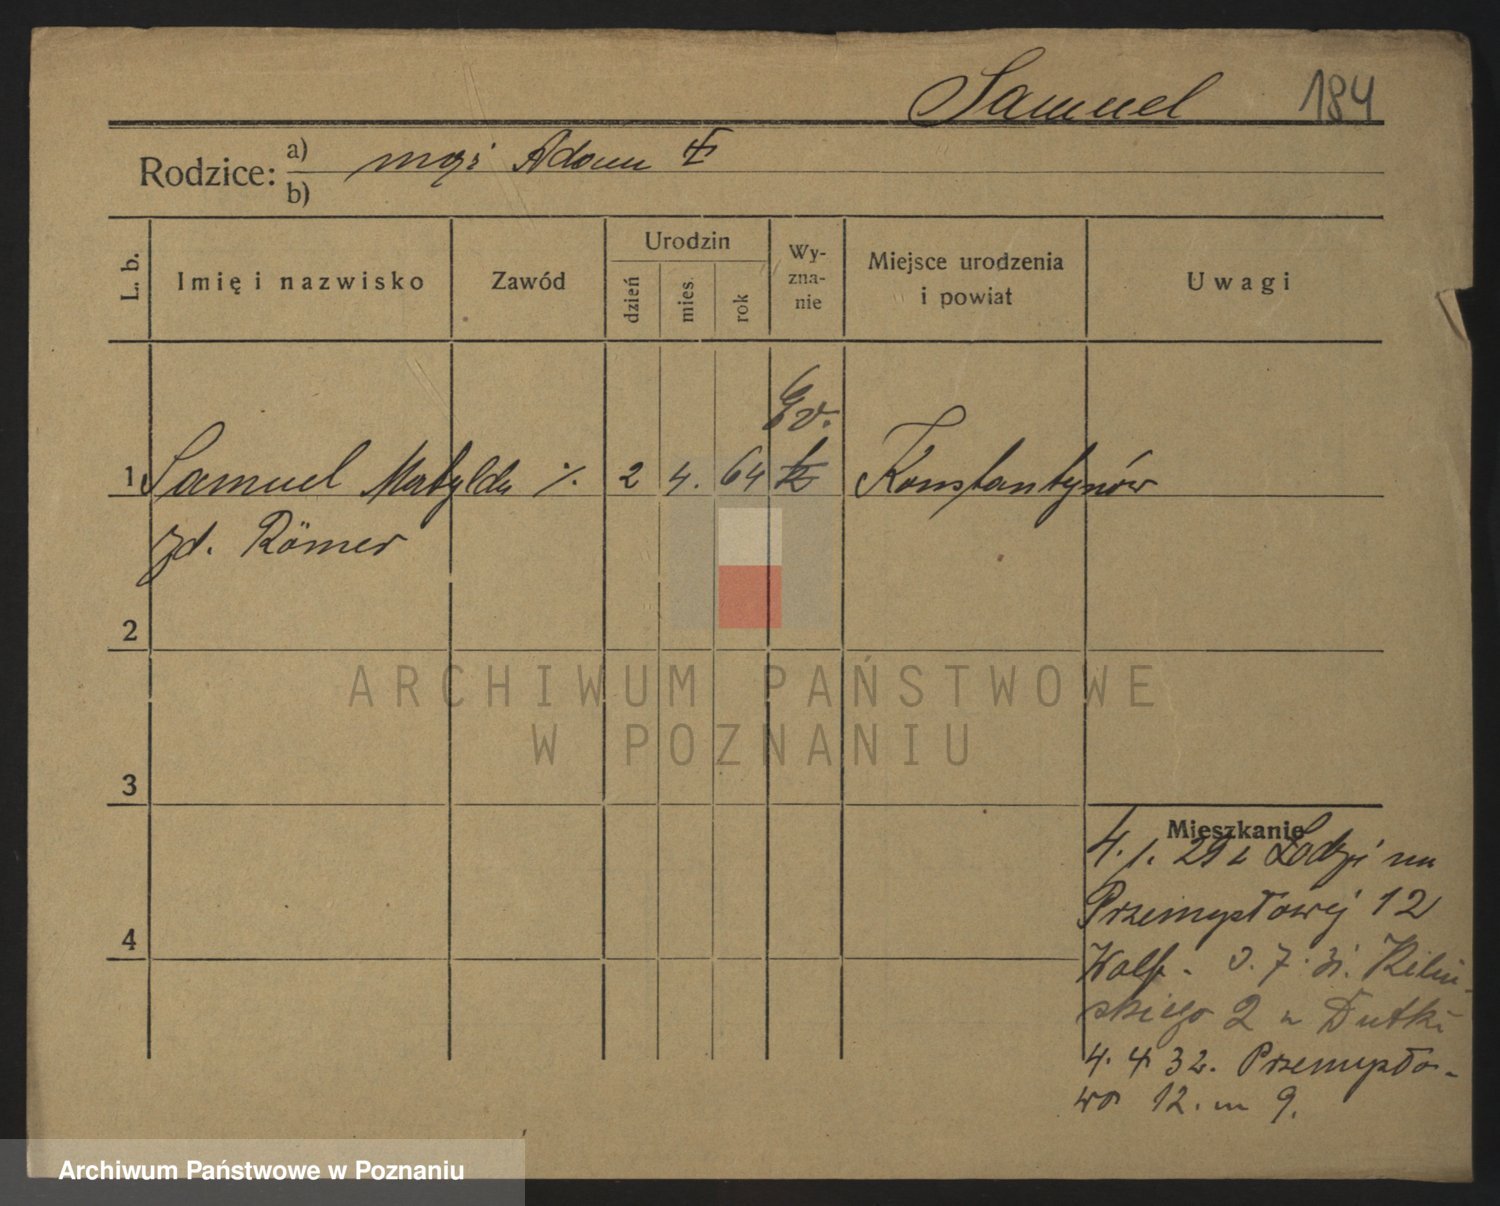 Samuel 184
Rodzice: a) mąż Adam
b)
L. b.
Imię i nazwisko
Zawód
Urodzin
dzień
mies.
rok
Wy-
zna-
nie
Miejsce urodzenia
i powiat
Uwagi
Ev.
1 Samuel Matylda ·/. 2 4. 64 Konstantynów
zd. Römer
2
3
4
Mieszkanie
4. 1. 29 z Łodzi na
Przemysłowej 12
Wolf. 3. 7. 31. Kiliń-
skiego 2 u Dutki
4. 4 32. Przemysło-
wa 12. m 9.
ARCHIWUM PAŃSTWOWE
W POZNANIU
Archiwum Państwowe w Poznaniu